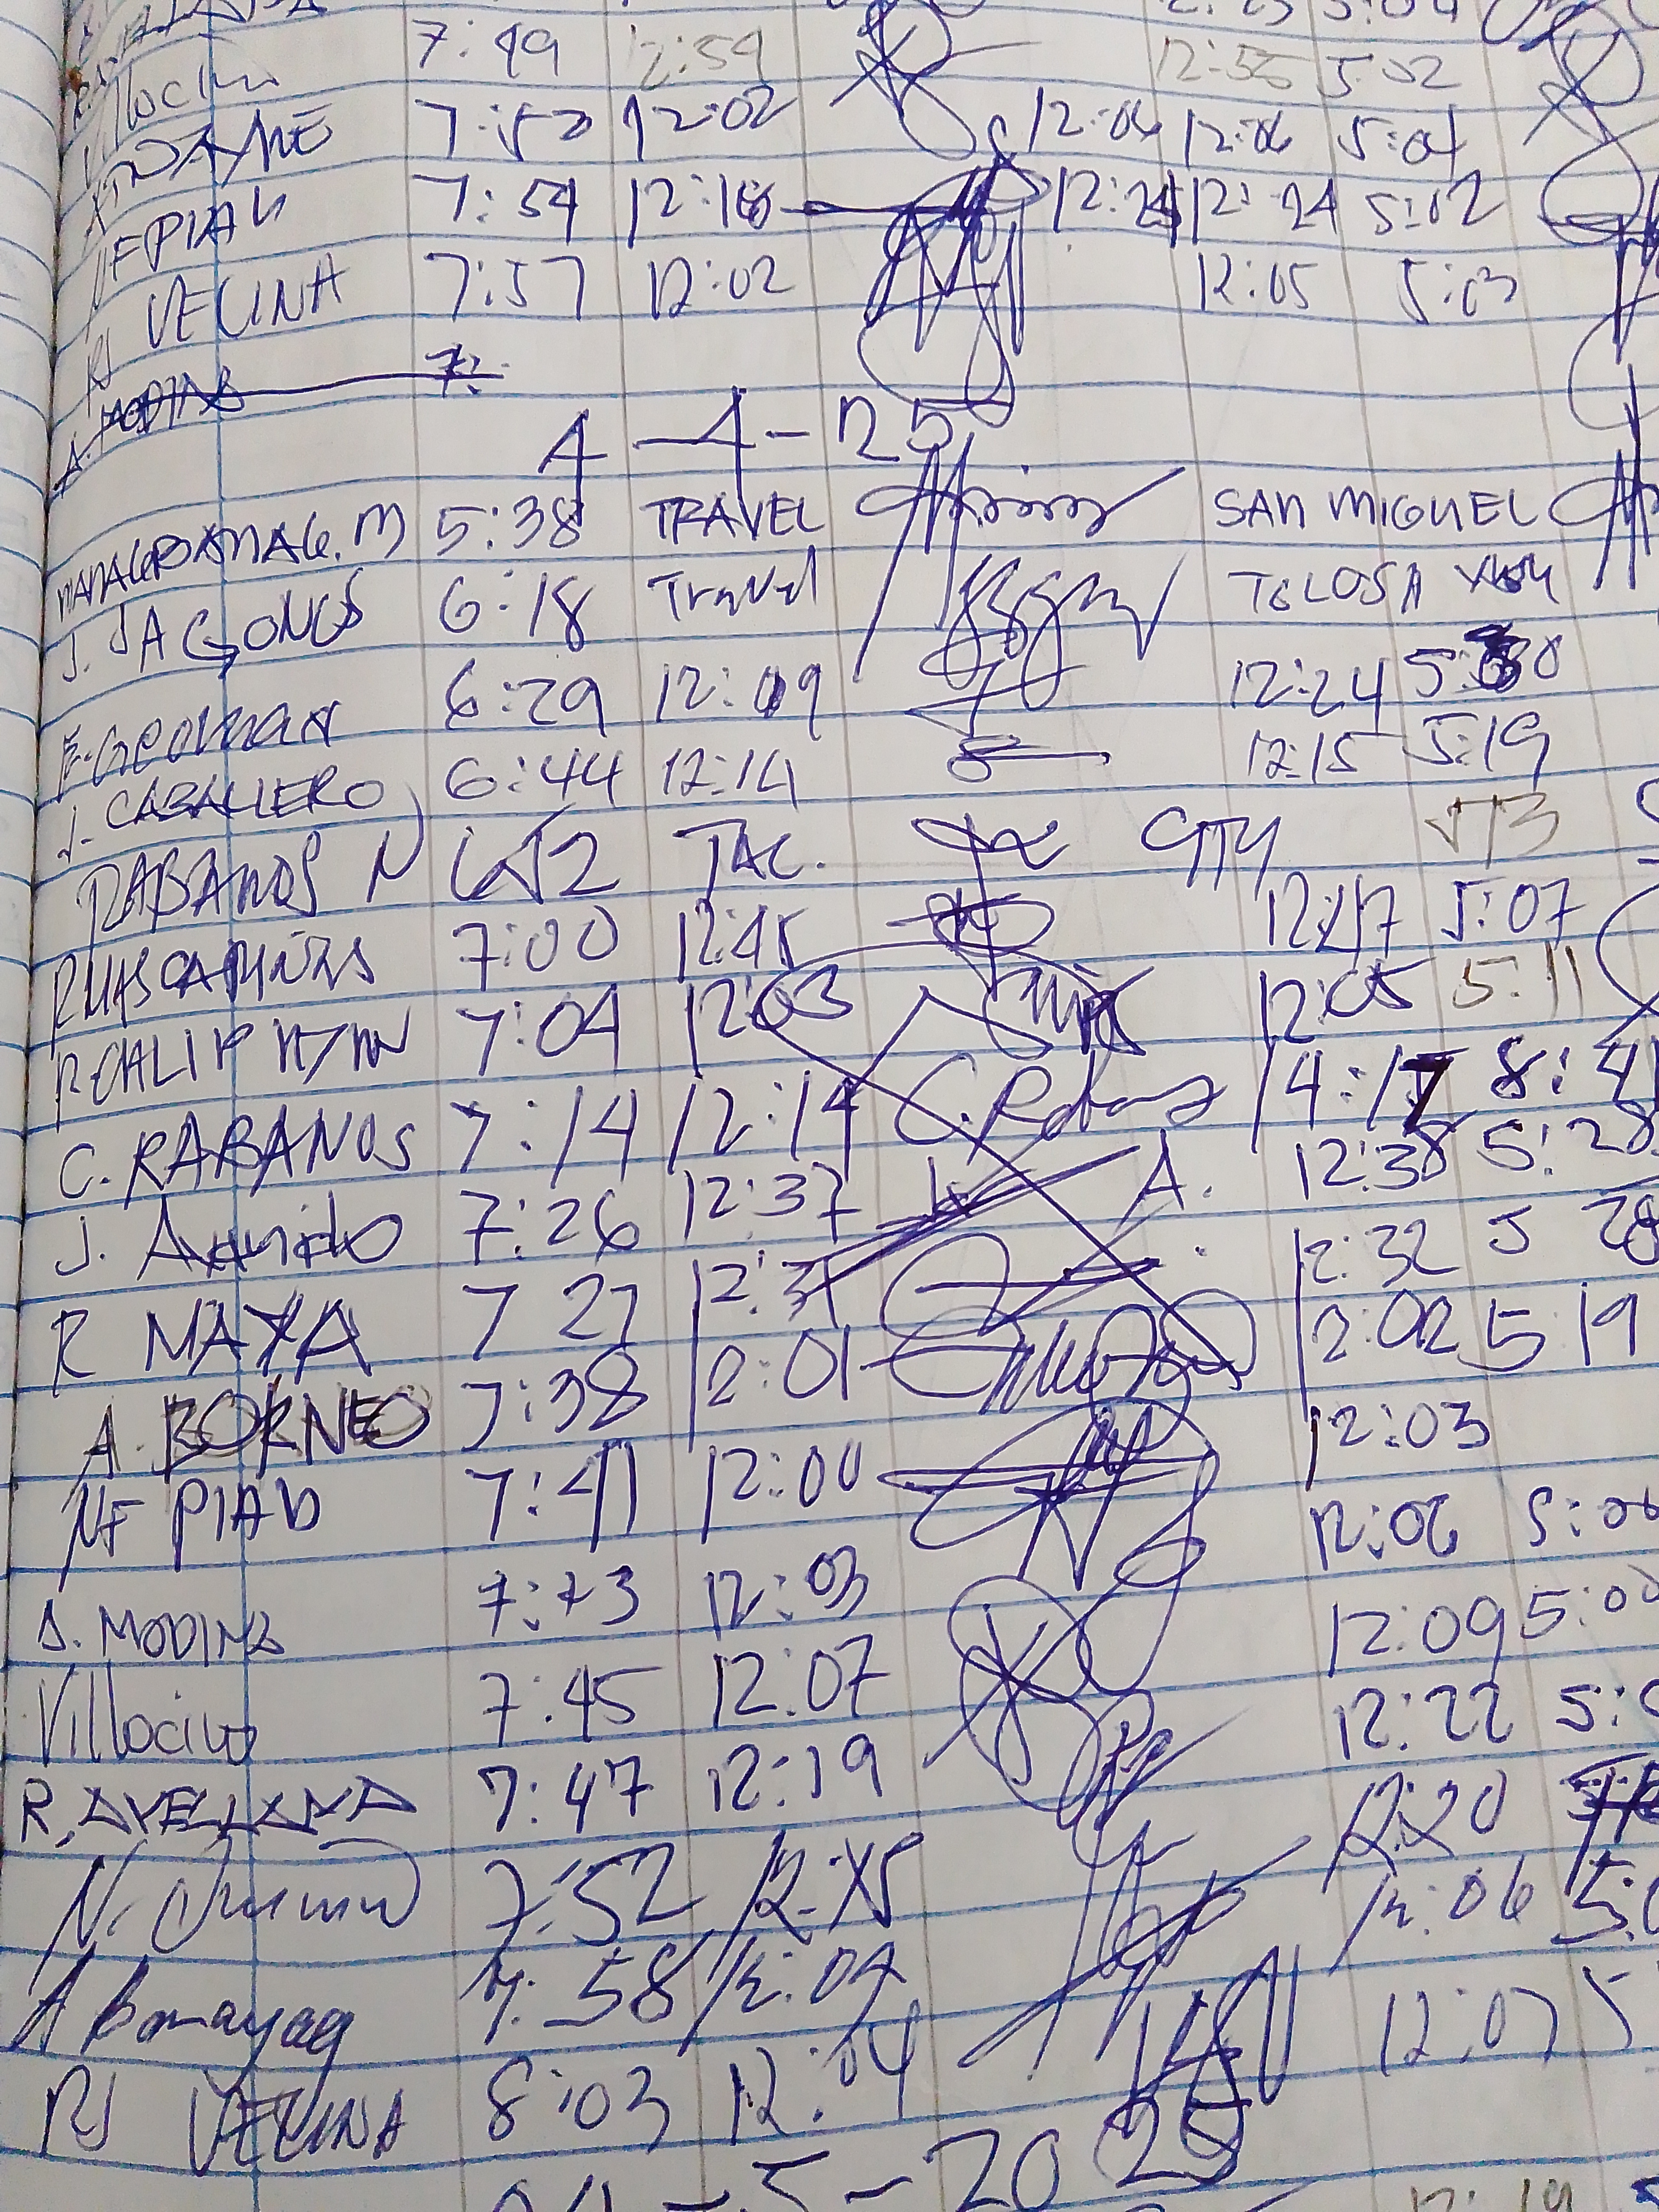 7:49 12:59 12:55 5:02
7:52 12:02 12:06 12:06 5:04
NF PIAD 7:54 12:18 12:24 12:24 5:02
RJ VECINA 7:57 12:02 12:05 5:03
7:
4-4-25
5:38 TRAVEL SAN MIGUEL
J. JAGONOS 6:18 Travel TOLOSA
E. 6:29 12:09 12:24 5:30
J. CABALLERO 6:44 12:14 12:15 5:19
RABANOS N 652 TAC. CITY 513
7:00 12:45 12:47 5:07
7:04 12:03 12:05 5:11
C. RABANOS 7:14 12:14 C. Rabanos 14:17 8:4
J. 7:26 12:37 A. 12:38 5:28
R MAYA 7 27 12:31 12:32 5 28
A. BORNEO 7:38 12:01 12:02 5 19
NF PIAD 7:41 12:00 12:03
A. MODINA 7:43 12:03 12:06 5:06
Villocino 7:45 12:07 12:09 5:00
R. AVELLANA 7:47 12:19 12:22 5:
N. 7:52 12:15 12:20
A 7:58 12:04 12:06 5:0
RJ VECINA 8:03 12:04 12:07 5
04-5-2025